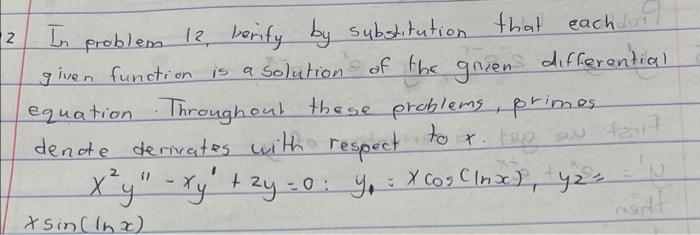 2 In problem 12, verify by substitution that each
given function is a solution of the given differential
equation. Throughout these problems, primes
denote derivates with respect to x.
x²y" - xy' + 2y = 0: y₁ = x cos(ln x), y2 =
x sin(ln x)